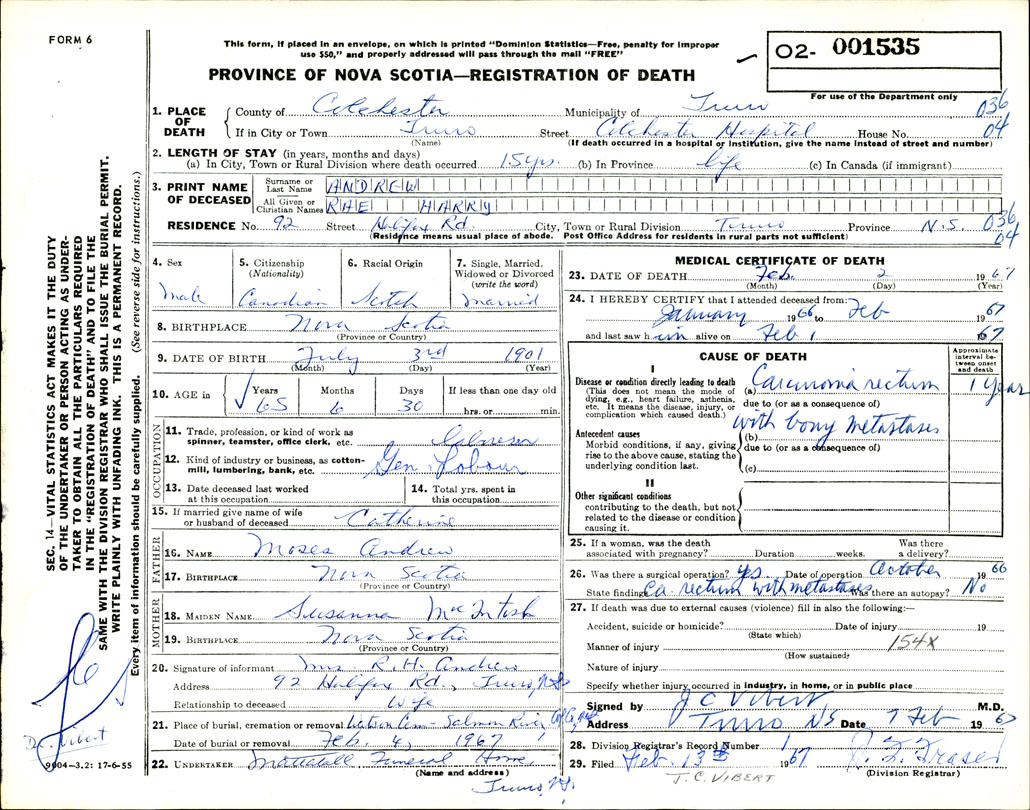 FORM 6
This form, if placed in an envelope, on which is printed "Dominion Statistics—Free, penalty for improper
use $50," and properly addressed will pass through the mail "FREE"
PROVINCE OF NOVA SCOTIA—REGISTRATION OF DEATH
O2- 001535
For use of the Department only
036
04
1. PLACE OF DEATH
County of Colchester Municipality of Truro
If in City or Town Truro Street Colchester Hospital House No.
(Name) (If death occurred in a hospital or institution, give the name instead of street and number)
2. LENGTH OF STAY (in years, months and days)
(a) In City, Town or Rural Division where death occurred 15 yrs. (b) In Province life (c) In Canada (if immigrant)
3. PRINT NAME OF DECEASED
Surname or Last Name ANDREW
All Given or Christian Names RAE HARRY
RESIDENCE No. 92 Street Halifax Rd. City, Town or Rural Division Truro Province N.S. 036
04
(Residence means usual place of abode. Post Office Address for residents in rural parts not sufficient)
4. Sex
Male
5. Citizenship
(Nationality)
Canadian
6. Racial Origin
Scotch
7. Single, Married, Widowed or Divorced
(write the word)
Married
8. BIRTHPLACE Nova Scotia
(Province or Country)
9. DATE OF BIRTH July 3rd 1901
(Month) (Day) (Year)
10. AGE in Years Months Days If less than one day old
65 6 30 hrs. or min.
OCCUPATION
11. Trade, profession, or kind of work as
spinner, teamster, office clerk, etc. Labourer
12. Kind of industry or business, as cotton-
mill, lumbering, bank, etc. Gen. Labour
13. Date deceased last worked
at this occupation
14. Total yrs. spent in
this occupation
15. If married give name of wife
or husband of deceased Catherine
FATHER
16. NAME Moses Andrew
17. BIRTHPLACE Nova Scotia
(Province or Country)
MOTHER
18. MAIDEN NAME Susanna MacIntosh
19. BIRTHPLACE Nova Scotia
(Province or Country)
20. Signature of informant Mrs. R.H. Andrew
Address 92 Halifax Rd., Truro, N.S
Relationship to deceased Wife
21. Place of burial, cremation or removal Watson Cem - Salmon River, Col. Co.
Date of burial or removal Feb. 4, 1967
22. UNDERTAKER Mattatall Funeral Home
(Name and address)
Truro, N.S.
MEDICAL CERTIFICATE OF DEATH
23. DATE OF DEATH Feb. 2 1967
(Month) (Day) (Year)
24. I HEREBY CERTIFY that I attended deceased from:
January 1966 to Feb 1967
and last saw him alive on Feb 1 67
CAUSE OF DEATH
Approximate interval between onset and death
I
Disease or condition directly leading to death
(This does not mean the mode of
dying, e.g., heart failure, asthenia,
etc. It means the disease, injury, or
complication which caused death.)
(a) Carcinoma rectum 1 year
due to (or as a consequence of)
with bony metastases
Antecedent causes
Morbid conditions, if any, giving
rise to the above cause, stating the
underlying condition last.
(b)
due to (or as a consequence of)
(c)
II
Other significant conditions
contributing to the death, but not
related to the disease or condition
causing it.
25. If a woman, was the death
associated with pregnancy? Duration weeks. Was there
a delivery?
26. Was there a surgical operation? yes Date of operation October 1966
State findings Ca. rectum with metastases Was there an autopsy? No
27. If death was due to external causes (violence) fill in also the following:—
Accident, suicide or homicide? Date of injury 19
(State which)
Manner of injury 154X
(How sustained)
Nature of injury
Specify whether injury occurred in industry, in home, or in public place
Signed by J C Vibert M.D.
Address Truro NS Date 7 Feb 1967
28. Division Registrar's Record Number 1
29. Filed Feb. 13th 1967
(Division Registrar)
J. C. VIBERT
SEC. 14—VITAL STATISTICS ACT MAKES IT THE DUTY
OF THE UNDERTAKER OR PERSON ACTING AS UNDER-
TAKER TO OBTAIN ALL THE PARTICULARS REQUIRED
IN THE "REGISTRATION OF DEATH" AND TO FILE THE
SAME WITH THE DIVISION REGISTRAR WHO SHALL ISSUE THE BURIAL PERMIT.
WRITE PLAINLY WITH UNFADING INK. THIS IS A PERMANENT RECORD.
Every item of information should be carefully supplied. (See reverse side for instructions.)
Vibert
9004-3.2: 17-6-55